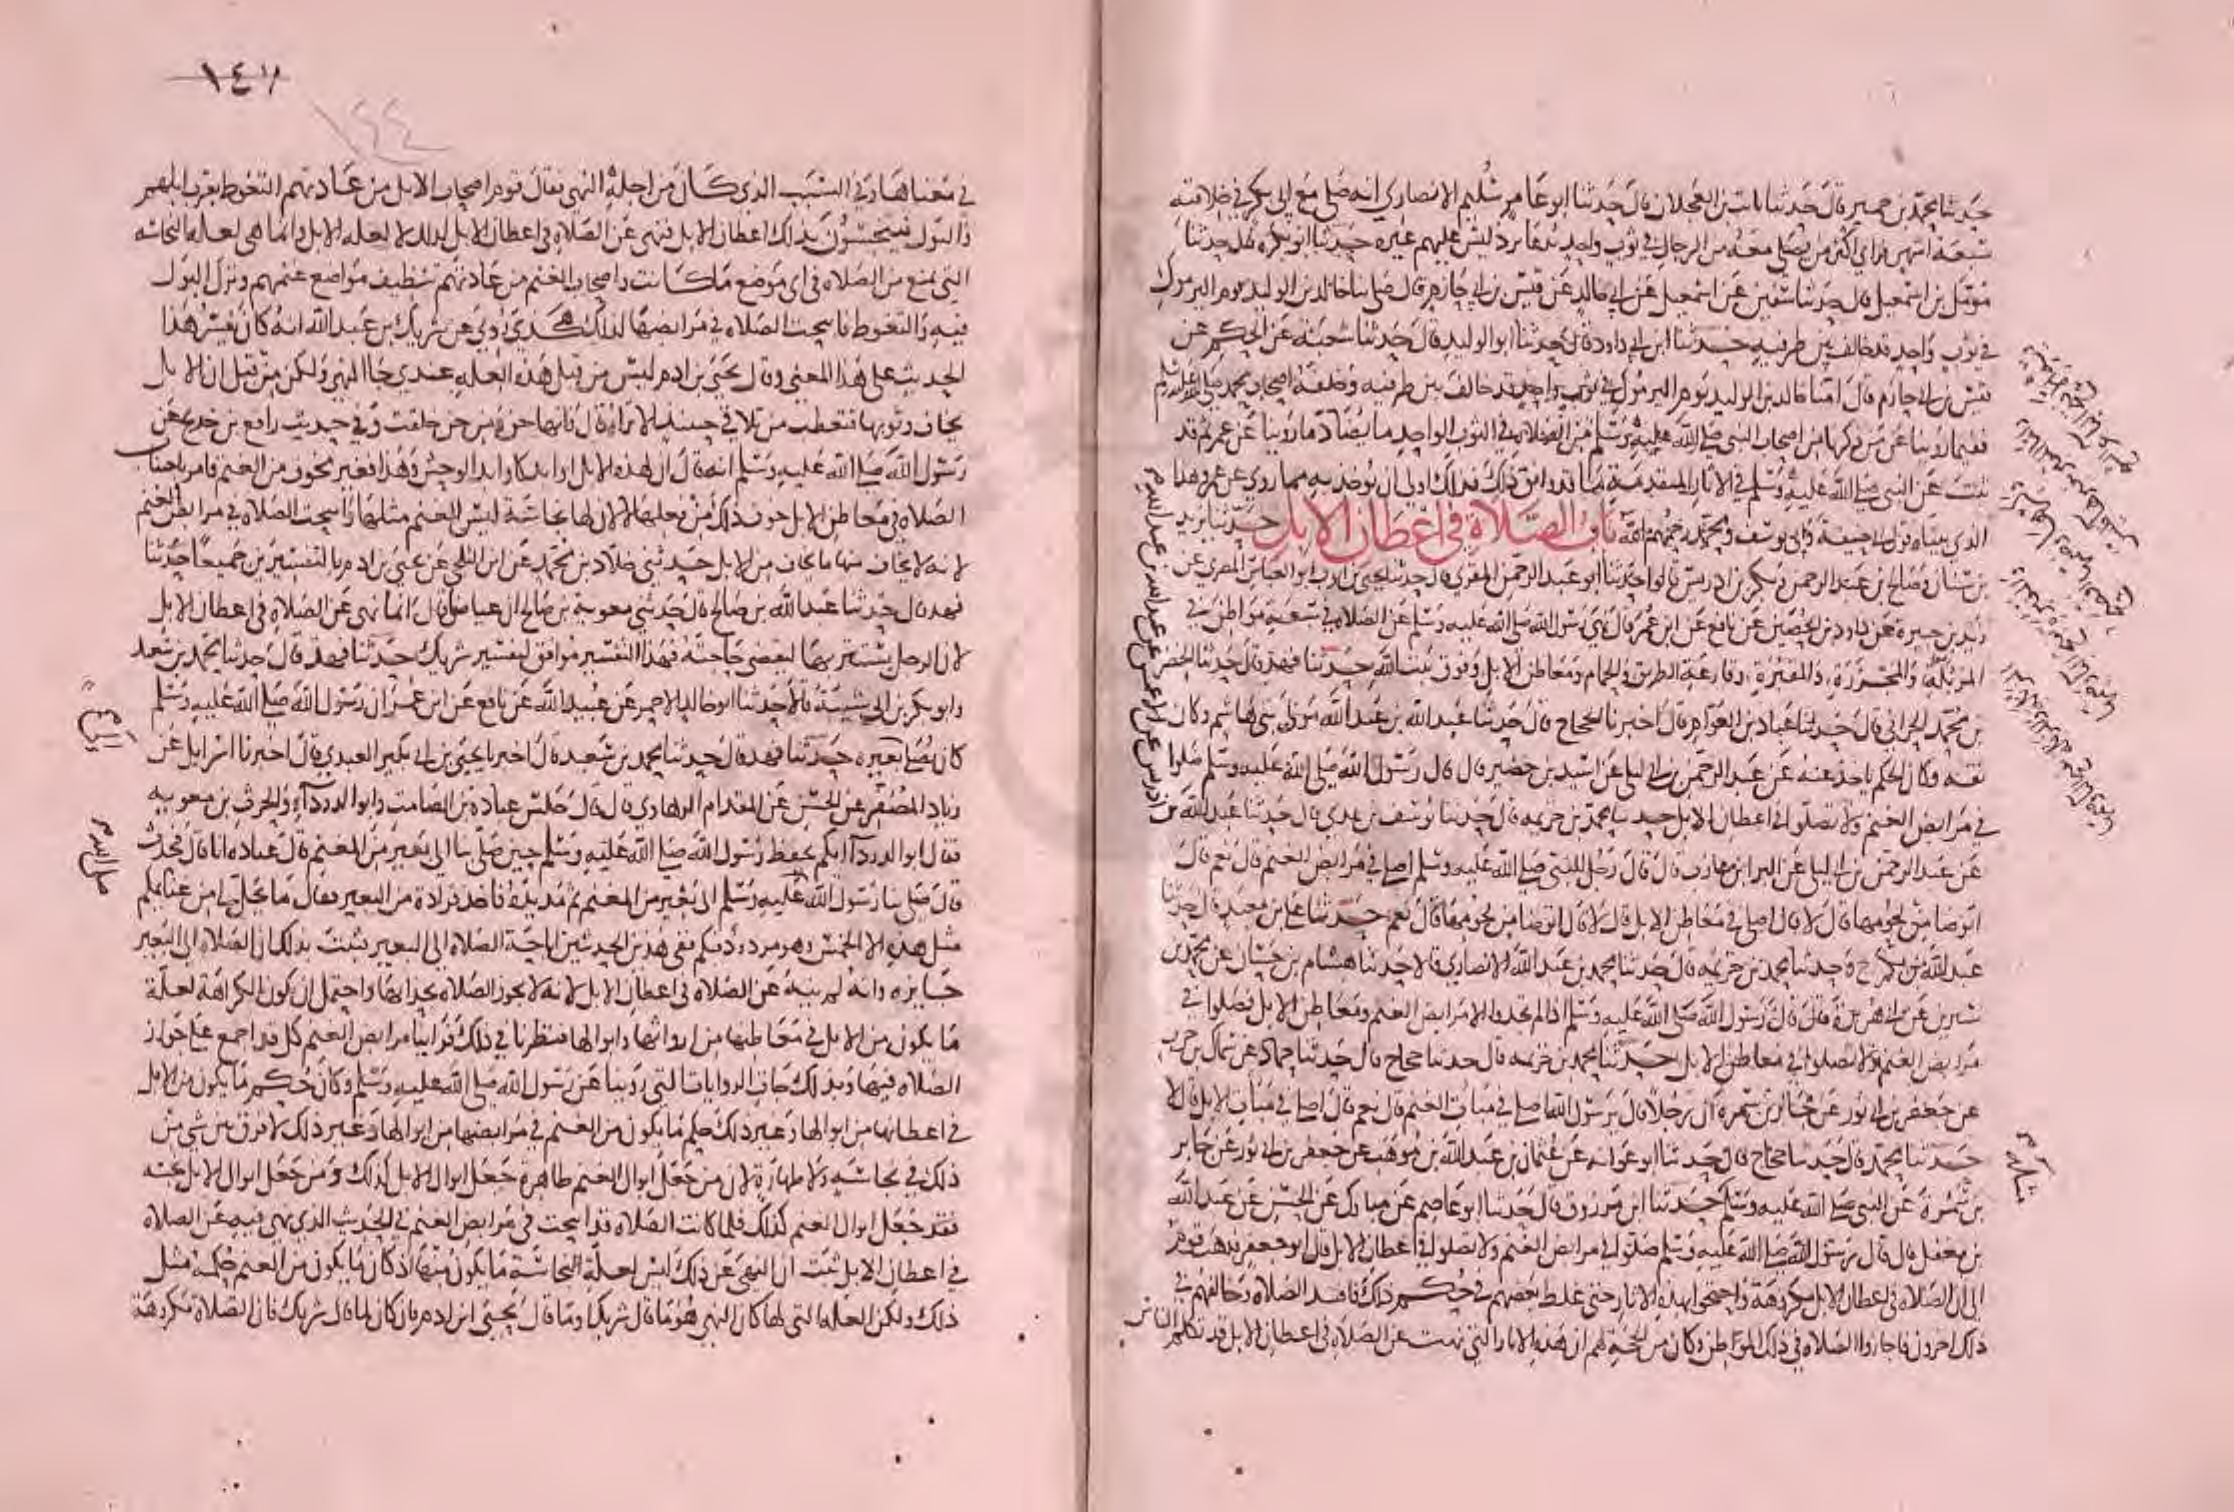 حدثنا محمد بن حمير قال حدثنا ثابت بن العجلان قال حدثنا ابو عامر سليم الانصاري انه صلى مع ابي بكر في خلافته
سبعة اشهر فراى اكثر من يصلي معه من الرجال في ثوب واحد برد ليس عليهم غيره حدثنا ابو بكرة قال حدثنا
مومل بن اسمعيل قال حدثنا سفين عن اسمعيل بن ابي خالد عن قيس بن ابي حازم قال صلى بنا خالد بن الوليد يوم اليرموك
في ثوب واحد قد خالف بين طرفيه حدثنا ابن ابي داود قال حدثنا ابو الوليد قال حدثنا شعبة عن الحكم عن
قيس بن ابي حازم قال امنا خالد بن الوليد يوم اليرموك في ثوب واحد قد خالف بين طرفيه وخلفه اصحاب محمد صلى الله عليه وسلم
ففيما روينا عن من ذكرنا من اصحاب النبي صلى الله عليه وسلم من الصلاة في الثوب الواحد ما يضاد ما روينا عن عمر ثم قد
ثبت عن النبي صلى الله عليه وسلم في الاثار المتقدمة ما قد وافق ذلك فذلك اولى ان يوخذ به مما روي عن عمر وهذا
الذي بيناه قول ابي حنيفة وابي يوسف ومحمد رحمهم الله باب الصلاة في اعطان الابل حدثنا يزيد
بن سنان وصالح بن عبد الرحمن وبكر بن ادريس قالوا حدثنا ابو عبد الرحمن المقري قال حدثنا يحيى بن ايوب ابو العباس المصري عن
زيد بن جبيرة عن داود بن الحصين عن نافع عن ابن عمر قال نهى رسول الله صلى الله عليه وسلم عن الصلاة في سبعة مواطن في
المزبلة والمجزرة والمقبرة وقارعة الطريق والحمام ومعاطن الابل وفوق بيت الله حدثنا فهد قال حدثنا الخضر
بن محمد الحراني قال حدثنا عباد بن العوام قال اخبرنا الحجاج قال حدثنا عبد الله بن عبد الله مولى بني هاشم وكان
ثقة وكان الحكم ياخذ عنه عن عبد الرحمن بن ابي ليلى عن اسيد بن حضير قال قال رسول الله صلى الله عليه وسلم صلوا
في مرابض الغنم ولا تصلوا في اعطان الابل حدثنا محمد بن خزيمة قال حدثنا يوسف بن عدي قال حدثنا عبد الله بن
ادريس عن الاعمش عن عبد الله بن عبد الله
عن عبد الرحمن بن ابي ليلى عن البرا بن عازب قال قال رجل للنبي صلى الله عليه وسلم اصلي في مرابض الغنم قال نعم قال
اتوضا من لحومها قال لا قال اصلي في معاطن الابل قال لا قال اتوضا من لحومها قال نعم حدثنا علي بن معبد قال حدثنا
عبد الله بن بكر ح وحدثنا محمد بن خزيمة قال حدثنا محمد بن عبد الله الانصاري قالا حدثنا هشام بن حسان عن محمد بن
سيرين عن ابي هريرة قال قال رسول الله صلى الله عليه وسلم اذا لم تجدوا الا مرابض الغنم ومعاطن الابل فصلوا في
مرابض الغنم ولا تصلوا في معاطن الابل حدثنا محمد بن خزيمة قال حدثنا حجاج قال حدثنا حماد عن سماك بن حرب
عن جعفر بن ابي ثور عن جابر بن سمرة ان رجلا قال يرسول الله اصلي في مبات الغنم قال نعم قال اصلي في مبات الابل قال لا
حدثنا محمد قال حدثنا حجاج قال حدثنا ابو عوانة عن عثمان بن عبد الله بن موهب عن جعفر بن ابي ثور عن جابر
بن سمرة عن النبي صلى الله عليه وسلم حدثنا ابن مرزوق قال حدثنا ابو عاصم عن مبارك عن الحسن عن عبد الله
بن مغفل قال قال رسول الله صلى الله عليه وسلم صلوا في مرابض الغنم ولا تصلوا في اعطان الابل قال ابو جعفر فذهب قوم
الى ان الصلاة في اعطان الابل مكروهة واحتجوا بهذه الاثار حتى غلط بعضهم في حكم ذلك فافسد الصلاة وخالفهم في
ذلك اخرون فاجازوا الصلاة في ذلك الموطن وكان من الحجة لهم ان هذه الاثار التي نهت عن الصلاة في اعطان الابل قد تكلم الناس
مثله
١٤٣
١٤٤
في معناها وفي السبب الذي كان من اجله النهي فقال قوم اصحاب الابل من عادتهم التغوط بقرب ابلهم
والبول فينجسون بذلك اعطان الابل فنهى عن الصلاة في اعطان الابل لذلك لا لعلة الابل وانما هي لعلة النجاسة
التي تمنع من الصلاة في اي موضع ما كانت واصحاب الغنم من عادتهم تنظيف مواضع غنمهم وترك البول
فيه والتغوط فابيحت الصلاة في مرابضها لذلك هكذى روي عن شريك بن عبد الله انه كان يفسر هذا
الحديث على هذا المعنى وقال يحيى بن ادم ليس من قبل هذه العلة عندي جا النهي ولكن من قبل ان الابل
يخاف وثوبها فتعطب من تلاقي حينئذ الا تراه قال فانها جن من جن خلقت وفي حديث رافع بن خديج عن
رسول الله صلى الله عليه وسلم انه قال ان لهذه الابل اوابد كاوابد الوحش وهذا فغير مخوف من الغنم فامر باجتناب
الصلاة في معاطن الابل خوف ذلك من فعلها لا لان لها نجاسة ليس للغنم مثلها وابيحت الصلاة في مرابض الغنم
لانه لا يخاف منها ما يخاف من الابل حدثني خلاد بن محمد عن ابن الثلجي عن يحيى بن ادم بالتفسيرين جميعا حدثنا
فهد قال حدثنا عبد الله بن صالح قال حدثني معوية بن صالح ان عياضا قال انما نهى عن الصلاة في اعطان الابل
لان الرجل يستتر بها ليقضي حاجته فهذا التفسير موافق لتفسير شريك حدثنا فهد قال حدثنا محمد بن سعيد
وابو بكر بن ابي شيبة قالا حدثنا ابو خالد الاحمر عن عبيد الله عن نافع عن ابن عمر ان رسول الله صلى الله عليه وسلم
كان يصلي الى بعيره حدثنا فهد قال حدثنا محمد بن سعيد قال اخبرنا يحيى بن ابي بكير العبدي قال اخبرنا اسرايل عن
زياد المصفر عن الحسن عن المقدام الرهاوي قال قال جلس عبادة بن الصامت وابو الدرداء والحرث بن معوية
فقال ابو الدرداء ايكم يحفظ رسول الله صلى الله عليه وسلم حين صلى بنا الى بعير من المغنم قال عبادة انا قال فحدث
قال صلى بنا رسول الله صلى الله عليه وسلم الى بعير من المغنم ثم مد يده فاخذ قرادة من البعير فقال ما يحل لي من غنايمكم
مثل هذه الا الخمس وهو مردود فيكم ففي هذين الحديثين اباحة الصلاة الى البعير فثبت بذلك ان الصلاة الى البعير
جايزة وانه لم ينه عن الصلاة في اعطان الابل لانه لا يجوز الصلاة بحذايها واحتمل ان تكون الكراهة لعلة
ما يكون من الابل في معاطنها من ارواثها وابوالها فنظرنا في ذلك فراينا مرابض الغنم كل قد اجمع على جواز
الصلاة فيها وبذلك جات الروايات التي روينا عن رسول الله صلى الله عليه وسلم وكان حكم ما يكون من الابل
في اعطانها من ابوالها وغير ذلك حكم ما يكون من الغنم في مرابضها من ابوالها وغير ذلك لا فرق بين شي من
ذلك في نجاسة ولا طهارة لان من جعل ابوال الغنم طاهرة جعل ابوال الابل كذلك ومن جعل ابوال الابل نجسة
فقد جعل ابوال الغنم كذلك فلما كانت الصلاة قد ابيحت في مرابض الغنم في الحديث الذي نهي فيه عن الصلاة
في اعطان الابل ثبت ان النهي عن ذلك ليس لعلة النجاسة ما يكون منها اذ كان ما يكون من الغنم حكمه مثل
ذلك ولكن العلة التي لها كان النهي هو ما قال شريك او ما قال يحيى ابن ادم فان كان لما قال شريك فان الصلاة مكروهة